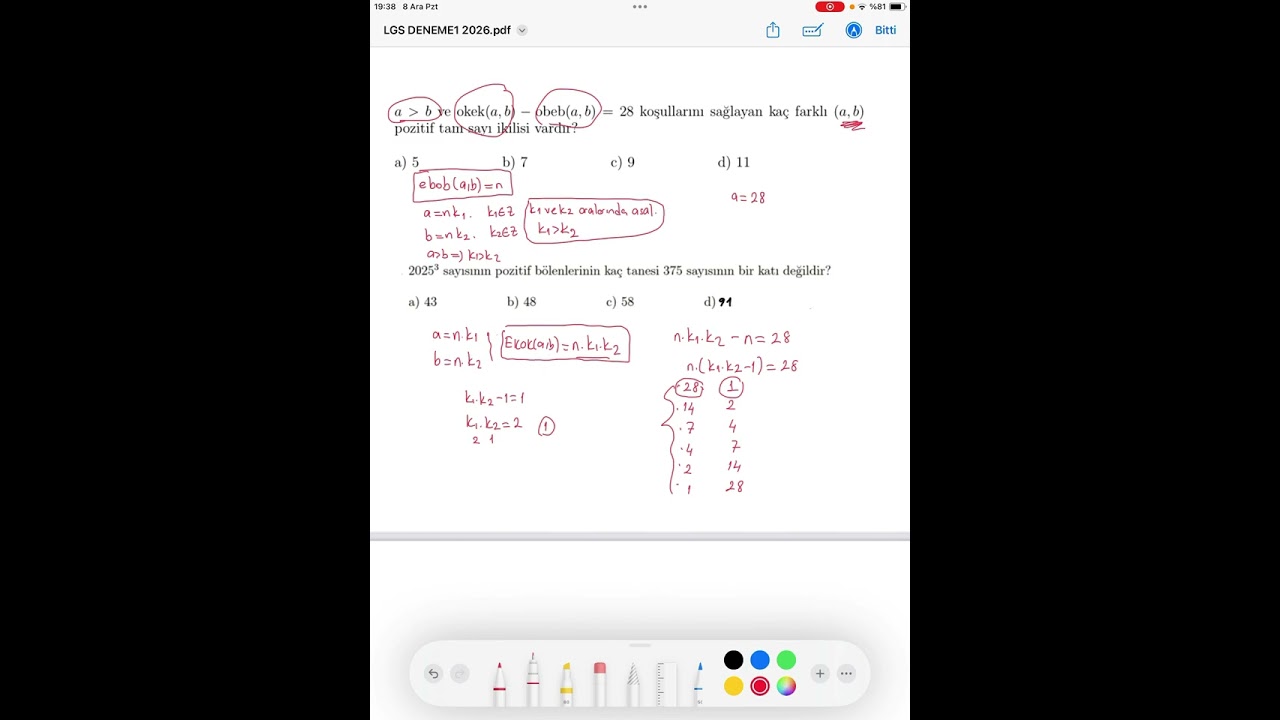 19:38 8 Ara Pzt
%81
LGS DENEME1 2026.pdf
Bitti
a > b ve okek(a, b) − obeb(a, b) = 28 koşullarını sağlayan kaç farklı (a, b)
pozitif tam sayı ikilisi vardır?
a) 5 b) 7 c) 9 d) 11
ebob(a,b)=n
a=28
a=nk₁. k₁∈Z
k₁ ve k₂ aralarında asal.
b=nk₂. k₂∈Z
k₁>k₂
a>b=) k₁>k₂
2025³ sayısının pozitif bölenlerinin kaç tanesi 375 sayısının bir katı değildir?
a) 43 b) 48 c) 58 d) 91
a=n.k₁
b=n.k₂
Ekok(a,b)=n.k₁.k₂
n.k₁.k₂ − n = 28
n.(k₁.k₂-1) = 28
28 1
14 2
7 4
4 7
2 14
1 28
k₁.k₂-1=1
k₁.k₂=2 1
2 1